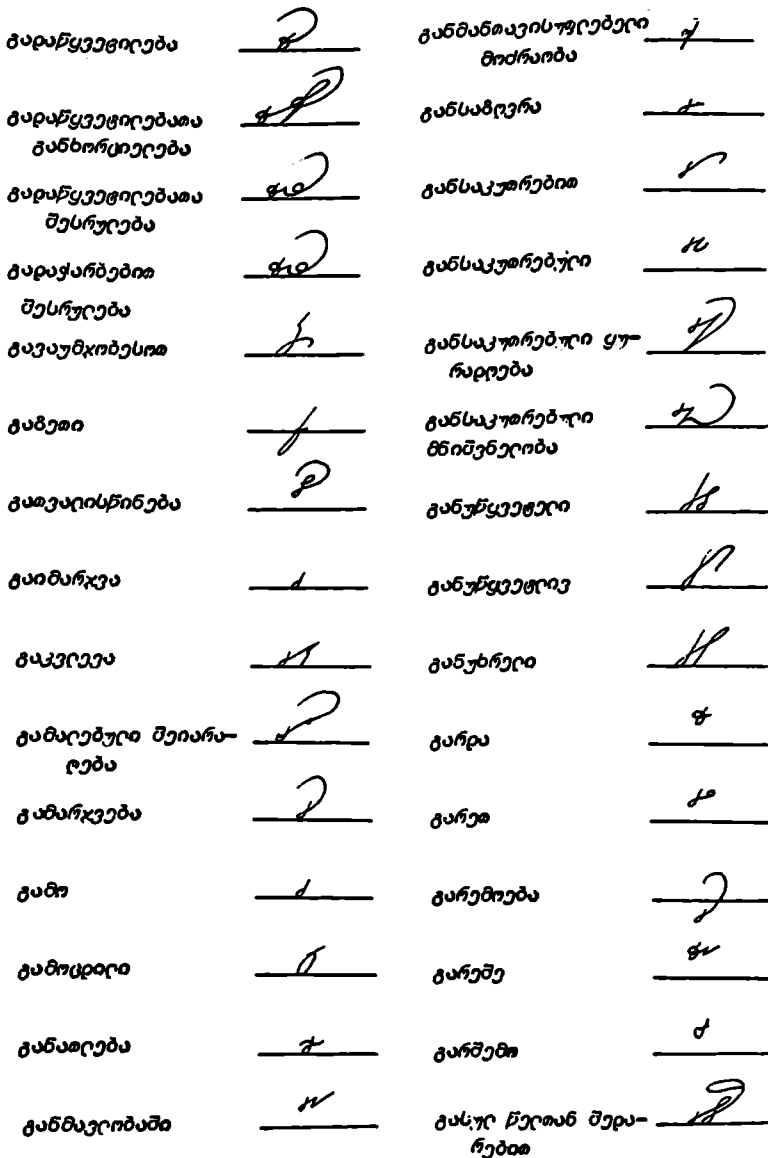 გადაწყვეტილება
გადაწყვეტილებათა
განხორციელება
გადაწყვეტილებათა
შესრულება
გადაჭარბებით
შესრულება
გავაუმჯობესოთ
გაზეთი
გათვალისწინება
გაიმარჯვა
გაკვლევა
გამალებული შეიარა-
ღება
გამარჯვება
გამო
გამოცდილი
განათლება
განმავლობაში
განმანთავისუფლებელი
მოძრაობა
განსაზღვრა
განსაკუთრებით
განსაკუთრებული
განსაკუთრებული ყუ-
რადღება
განსაკუთრებული
მნიშვნელობა
განუწყვეტელი
განუწყვეტლივ
განუხრელი
გარდა
გარეთ
გარემოება
გარეშე
გარშემო
გასულ წელთან შედა-
რებით